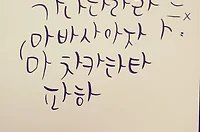 가나다라라
(마바사아자 ㅏ:
마 차카탄타
파하